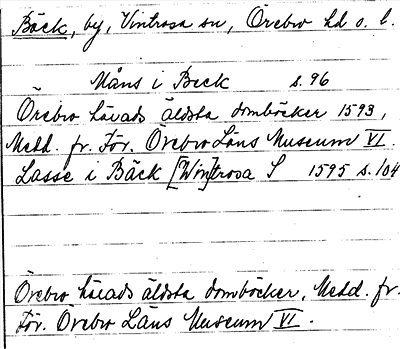 Bäck, by, Vintrosa sn, Örebro hd o. l.
Måns i Beck s. 96
Örebro härads äldsta domböcker 1593,
Medd. fr. För. Örebro Läns Museum VI.
Lasse i Bäck [Win]trosa S 1595 s. 104
Örebro härads äldsta domböcker, Medd. fr.
För. Örebro Läns Museum VI.